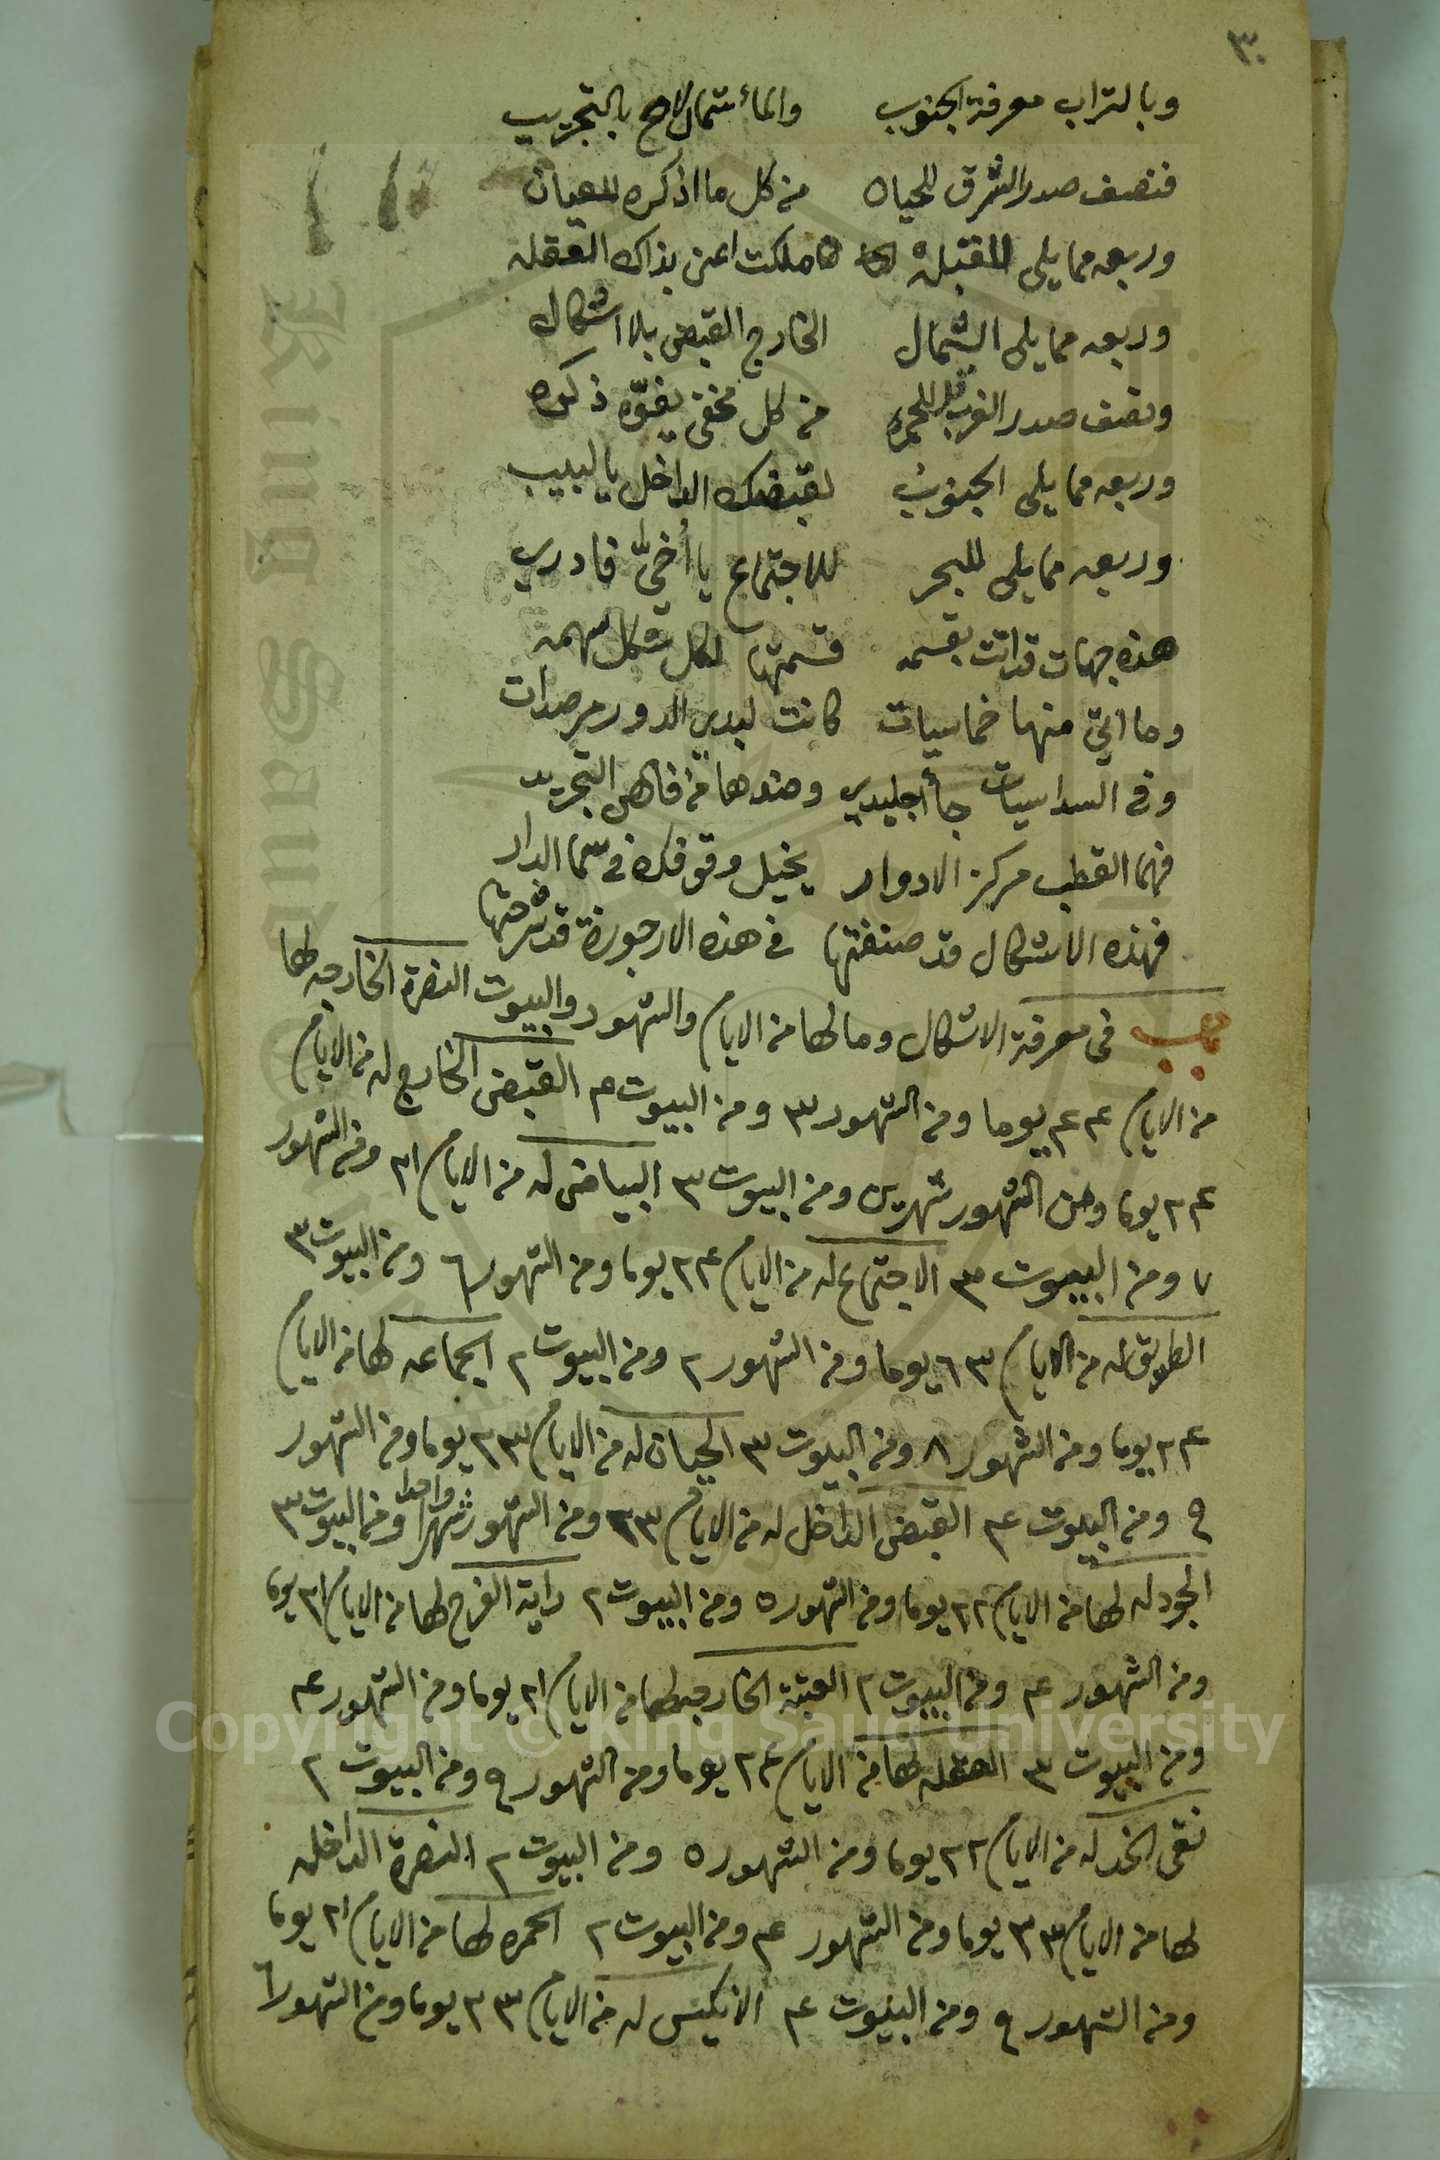 ٣٠
وبالتراب معرفة الجنوب والمأ شمال لاح بالتجريب
فنصف صدر الشرق للحياه من كل ما اذكره للعيان
وربعه مما يلى للقبله ملكت اعن بذاك العقله
وربعه مما يلى الشمال الخارج القبض بلا اشكال
ونصف صدر الغرب للحمره من كل مخفى يفوّه ذكره
وربعه مما يلى الجنوب لقبضك الداخل يا لبيب
وربعه مما يلى للبحر للاجتماع يا أخىّ فادرى
هذه جهات قد اتت بقسمه قسمتها لكل شكل سهمه
وما اتى منها خماسيات كانت لبدى الدور مرصدات
وفى السداسيات جأ جليدى وضدها من فاهى التجريد
فهما القطب مركز الادوار يخيل وقوفك فى سما الدار
فهذه الاشكال قد صنفتها فى هذه الارجوزة قد شرحتها
باب فى معرفة الاشكال وما لها من الايام والشهور والبيوت النصرة الخارجه لها
من الايام ٤٤ يوما ومن الشهور ٣ ومن البيوت ٤ القبض الخارج له من الايام
٢٤ يوما ومن الشهور شهرين ومن البيوت ٣ البياض له من الايام ٢١ ومن الشهور
٧ ومن البيوت ٣ الاجتماع له من الايام ٢٤ يوما ومن الشهور ٦ ومن البيوت ٣
الطريق له من الايام ٦٣ يوما ومن الشهور ٢ ومن البيوت ٢ الجماعه لها من الايام
٢٤ يوما ومن الشهور ٨ ومن البيوت ٣ الحيان له من الايام ٢٣ يوما ومن الشهور
٩ ومن البيوت ٤ القبض الداخل له من الايام ٢٣ ومن الشهور شهرا واحدا ومن البيوت ٣
الجودله لها من الايام ٢٢ يوما ومن الشهور ٥ ومن البيوت ٢ راية الفرح لها من الايام ٢١ يوما
ومن الشهور ٤ ومن البيوت ٢ العتبة الخارجه لها من الايام ٢١ يوما ومن الشهور ٤
ومن البيوت ٣ العقله لها من الايام ٢٤ يوما ومن الشهور ٩ ومن البيوت ٢
نقى الخد له من الايام ٢٢ يوما ومن الشهور ٥ ومن البيوت ٢ النصرة الداخله
لها من الايام ٣٣ يوما ومن الشهور ٤ ومن البيوت ٢ الحمره لها من الايام ٢١ يوما
ومن الشهور ٩ ومن البيوت ٤ الانكيس له من الايام ٢٣ يوما ومن الشهور ٦
King Saud University
Copyright © King Saud University